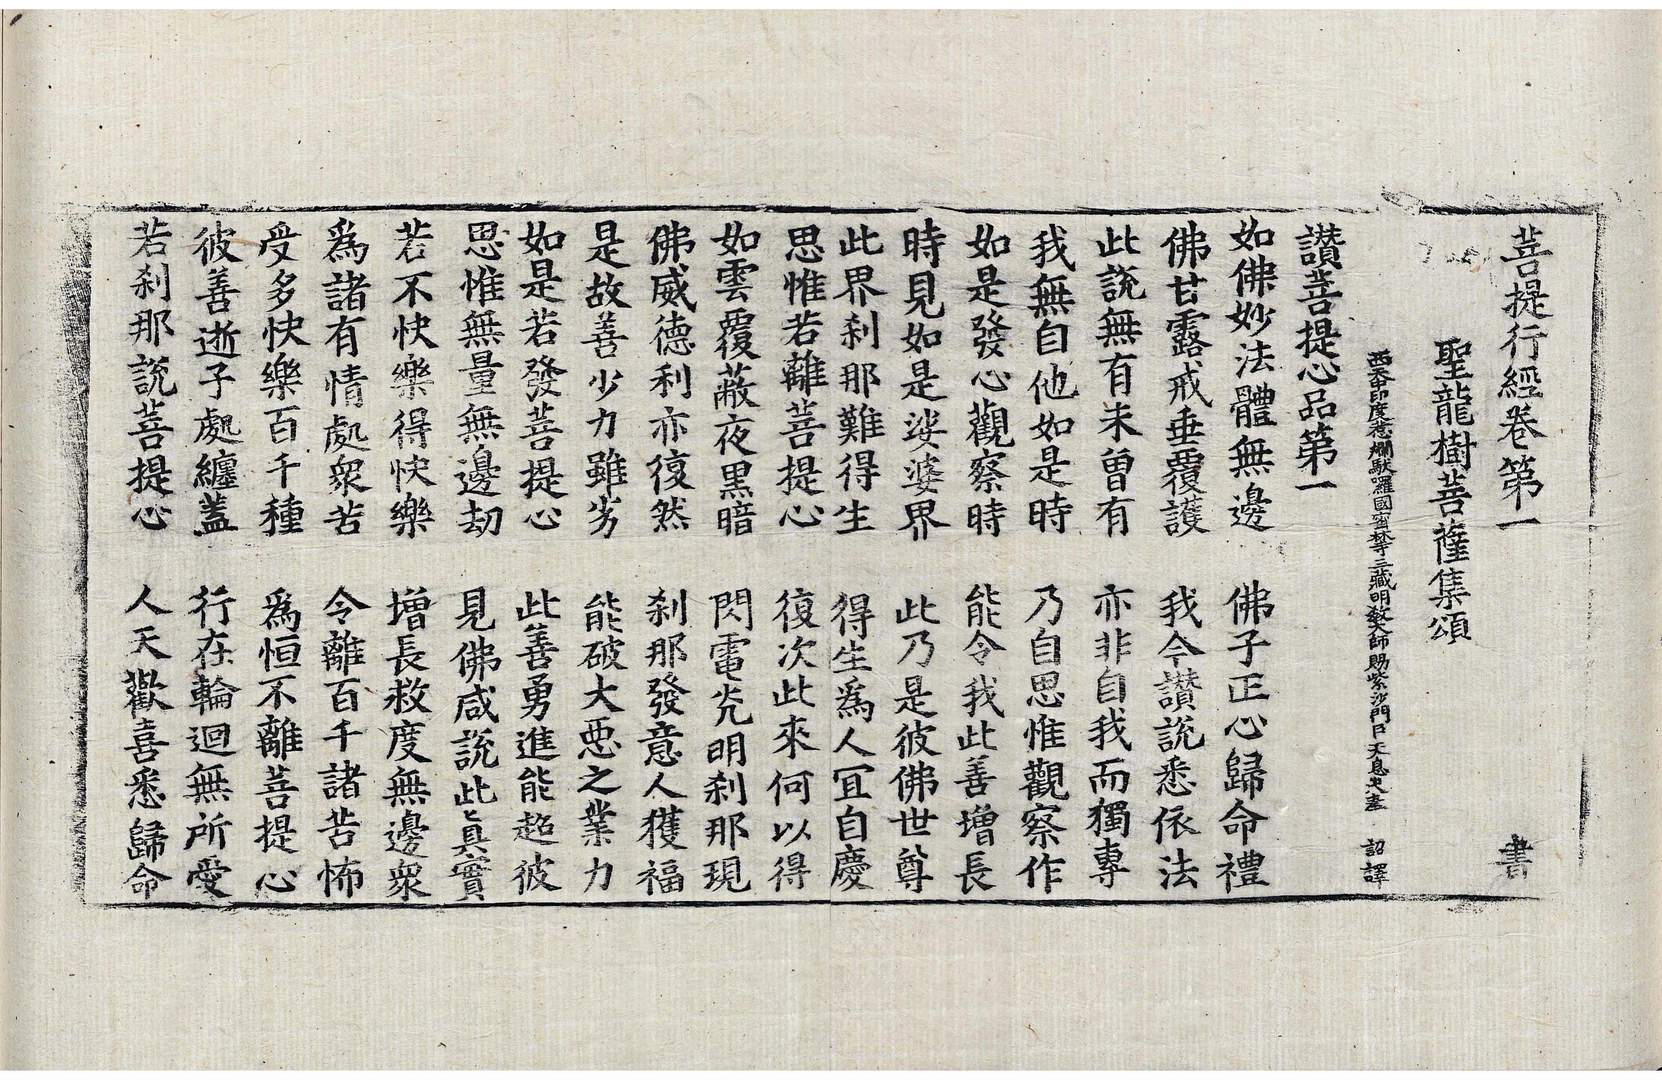 菩提行經卷第一　書
聖龍樹菩薩集頌
西天中印度惹爛馱囉國密林寺三藏明教大師賜紫沙門臣天息災奉　詔譯
讃菩提心品第一
如佛妙法體無邊　佛子正心歸命禮
佛甘露戒垂覆護　我今讃說悉依法
此說無有未曾有　亦非自我而獨專
我無自他如是時　乃自思惟觀察作
如是發心觀察時　能令我此善增長
時見如是娑婆界　此乃是彼佛世尊
此界刹那難得生　得生爲人冝自慶
思惟若離菩提心　復次此來何以得
如雲覆蔽夜黑暗　閃電光明刹那現
佛威德利亦復然　刹那發意人獲福
是故善少力雖劣　能破大惡之業力
如是若發菩提心　此善勇進能超彼
思惟無量無邊劫　見佛咸說此真實
若不快樂得快樂　增長救度無邊衆
爲諸有情處衆苦　令離百千諸苦怖
受多快樂百千種　爲恒不離菩提心
彼善逝子處纏蓋　行在輪迴無所愛
若刹那說菩提心　人天歡喜悉歸命